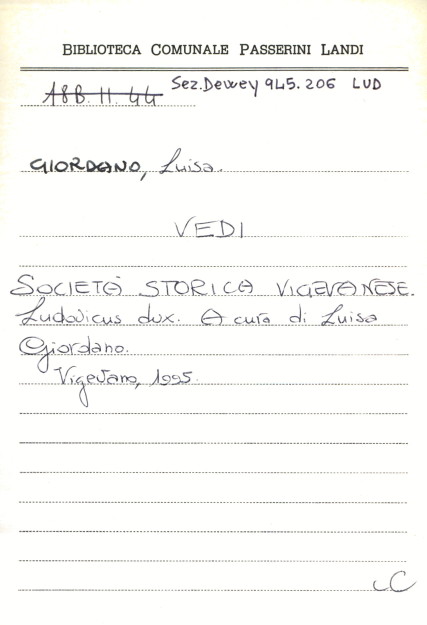 BIBLIOTECA COMUNALE PASSERINI LANDI
18B.II.44 Sez.Dewey 945.206 LUD
GIORDANO, Luisa.
VEDI
SOCIETÀ STORICA VIGEVANESE.
Ludovicus dux. A cura di Luisa
Giordano.
Vigevano, 1995.
LC